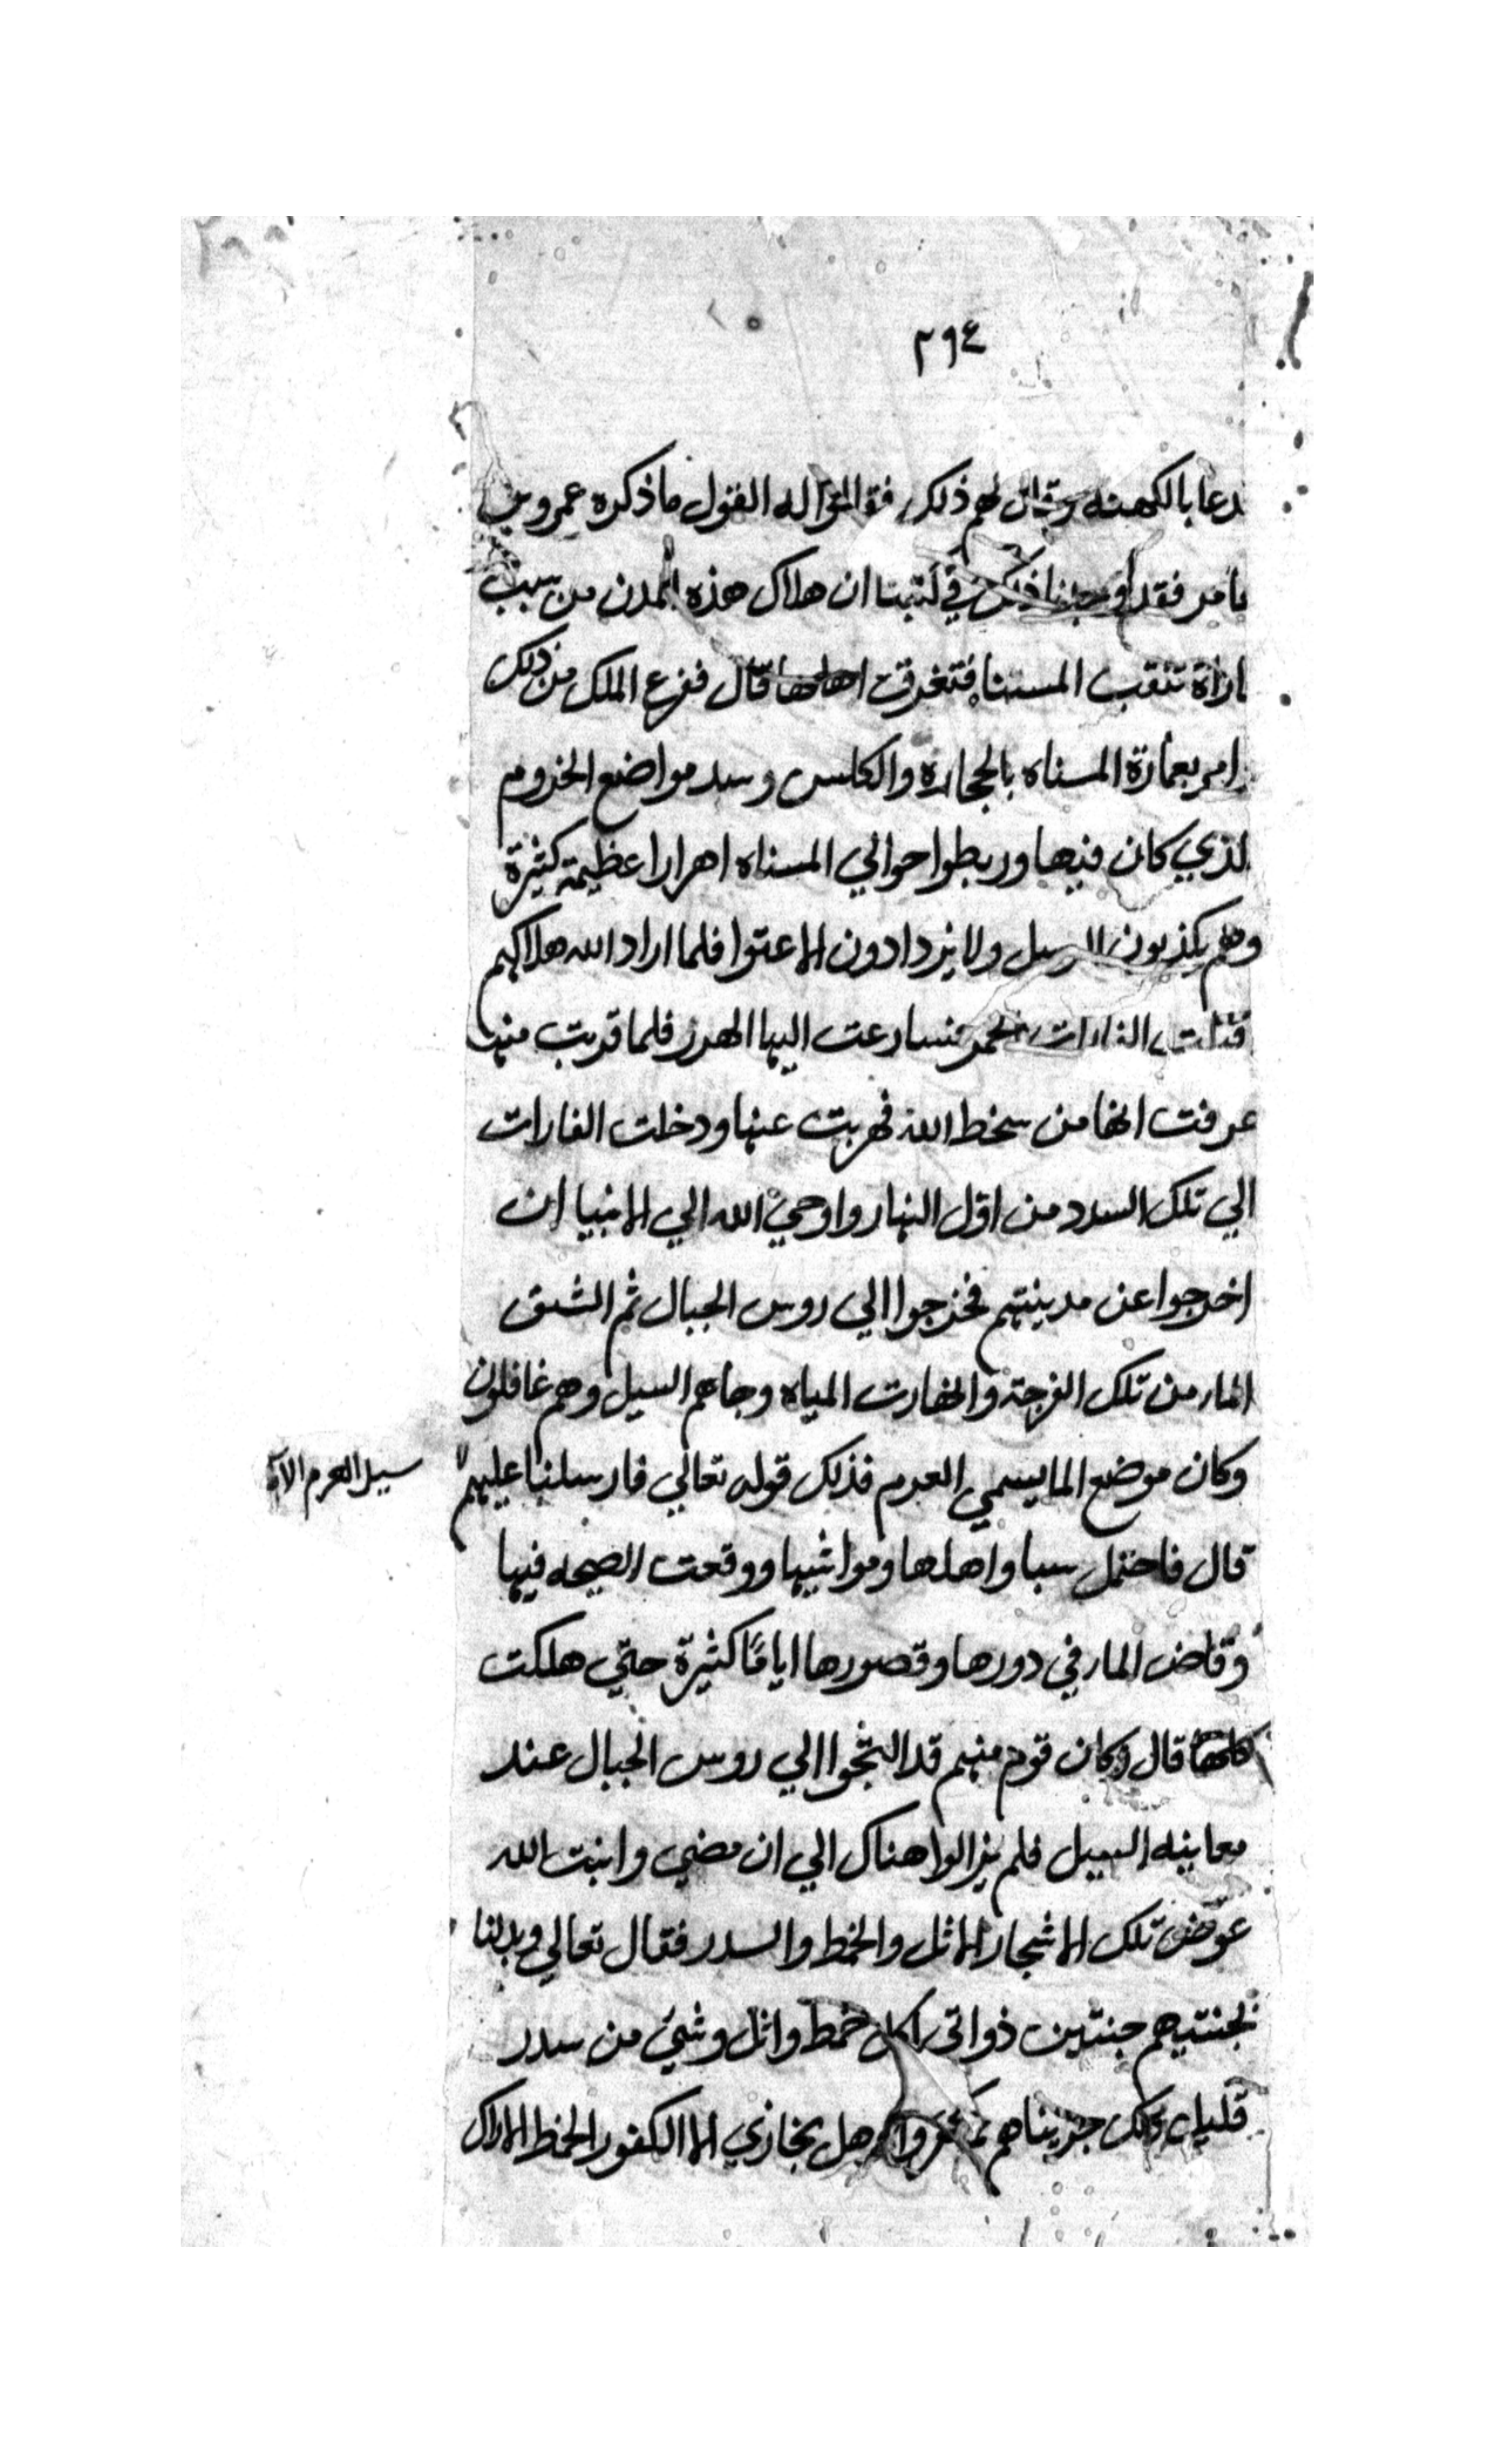 ٢٩٤
دعا بالكهنه وقال لهم ذلك فقالوا له القول ما ذكره عمرو بن
عامر فقد وجدنا ذلك في كتبنا ان هلاك هذه المدن من سبب
فاراة تنقب المسناه فتغرقت اهلها قال ففزع الملك من ذلك
وامر بعمارة المسناه بالحجاره والكلس وسد مواضع الخروم
الذي كان فيها وربطوا حوالي المسناه اهرارا عظيمة كثيرة
وهم يكذبون الرسل ولا يزدادون الا عتوا فلما اراد الله هلاكهم
الفارات الحمر فسارعت اليها الهرر فلما قربت منها
عرفت انها من سخط الله فهربت عنها ودخلت الفارات
الي تلك السدد من اول النهار واوحي الله الي الانبيا ان
اخرجوا عن مدينتهم فخرجوا الي روس الجبال ثم انشق
الما من تلك الفرجة وانهارت المياه وجاهم السيل وهم غافلون
وكان موضع الما يسمي العرم فذلك قوله تعالي فارسلنا عليهم
سيل العرم الآية
قال فاحتمل سبا واهلها ومواشيها ووقعت الصيحه فيها
وفاض الما في دورها وقصورها ايامًا كثيرة حتي هلكت
كلها قال وكان قوم منهم قد التجوا الي روس الجبال عند
معاينه السيل فلم يزالوا هناك الي ان مضي وانبت الله
عوض تلك الاشجار الاثل والخمط والسدر فقال تعالي وبدلنا
بجنتيهم جنتين ذواتي اكل خمط واثل وشئ من سدر
قليل ذلك جزيناهم بما كفروا وهل يجازي الا الكفور الخمط الاراك